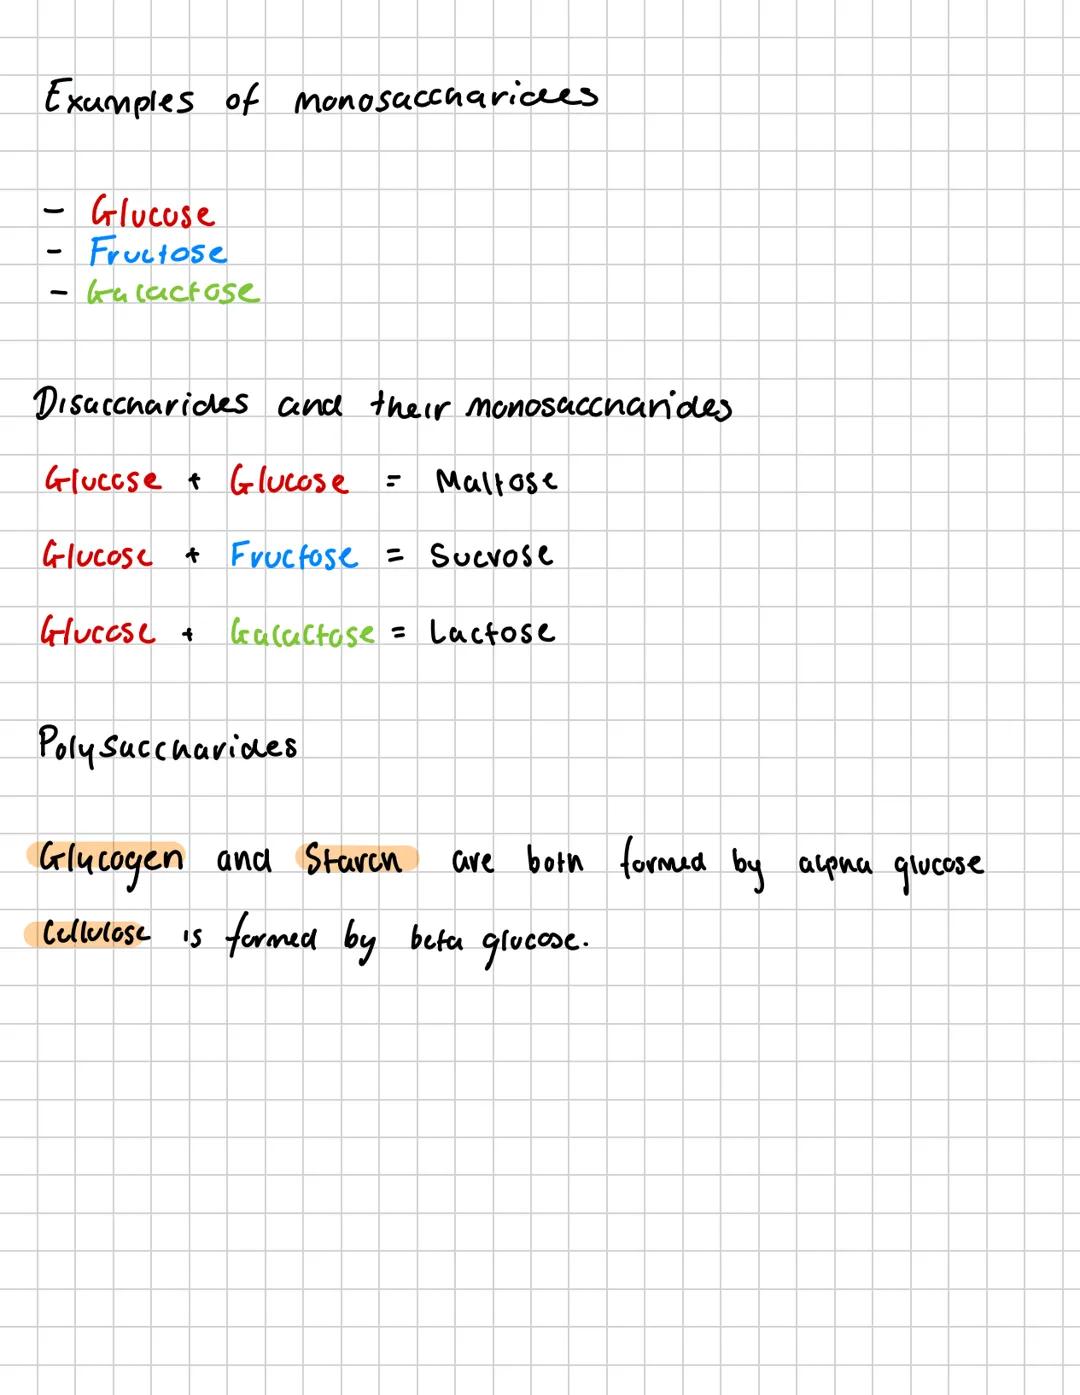 Examples of monosaccharides
- Glucose
- Fructose
- Galactose
Disaccharides and their monosaccharides
Glucose + Glucose = Maltose
Glucose + Fructose = Sucrose
Glucose + Galactose = Lactose
Polysaccharides
Glycogen and Starch are both formed by alpha glucose
Cellulose is formed by beta glucose.